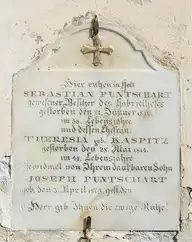 Hier ruhen in Gott
SEBASTIAN PUNTSCHART
gewesener Besitzer des Gabrielhofes
gestorben den 21. Jänner
im Lebensjahre
und dessen Ehefrau
THERESIA geb. KASPITZ
gestorben den 28. Mai
im 48. Lebensjahre
Gewidmet von Ihrem dankbaren Sohn
JOSEPH PUNTSCHART
geb. den April gest. den
Herr gib Ihnen die ewige Ruhe!